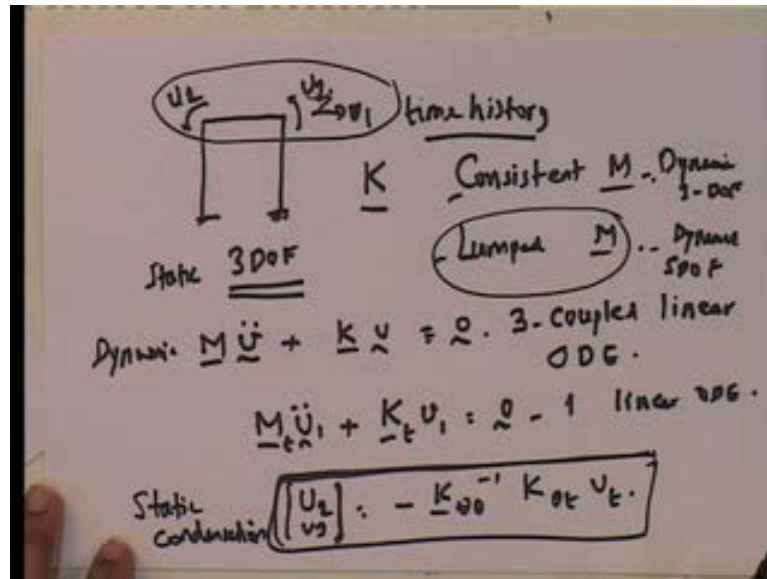 U2 U3 U1 time history
K Consistent M - Dynamic 3-DOF
Static 3DOF - Lumped M .. Dynamic SDOF
Dynamic M Ü + K U = 0. 3-Couples linear ODE.
Mt Ü1 + Kt U1 = 0 - 1 linear ODE.
Static condensation [U2 U3] = - Kθθ⁻¹ Kθt Ut.